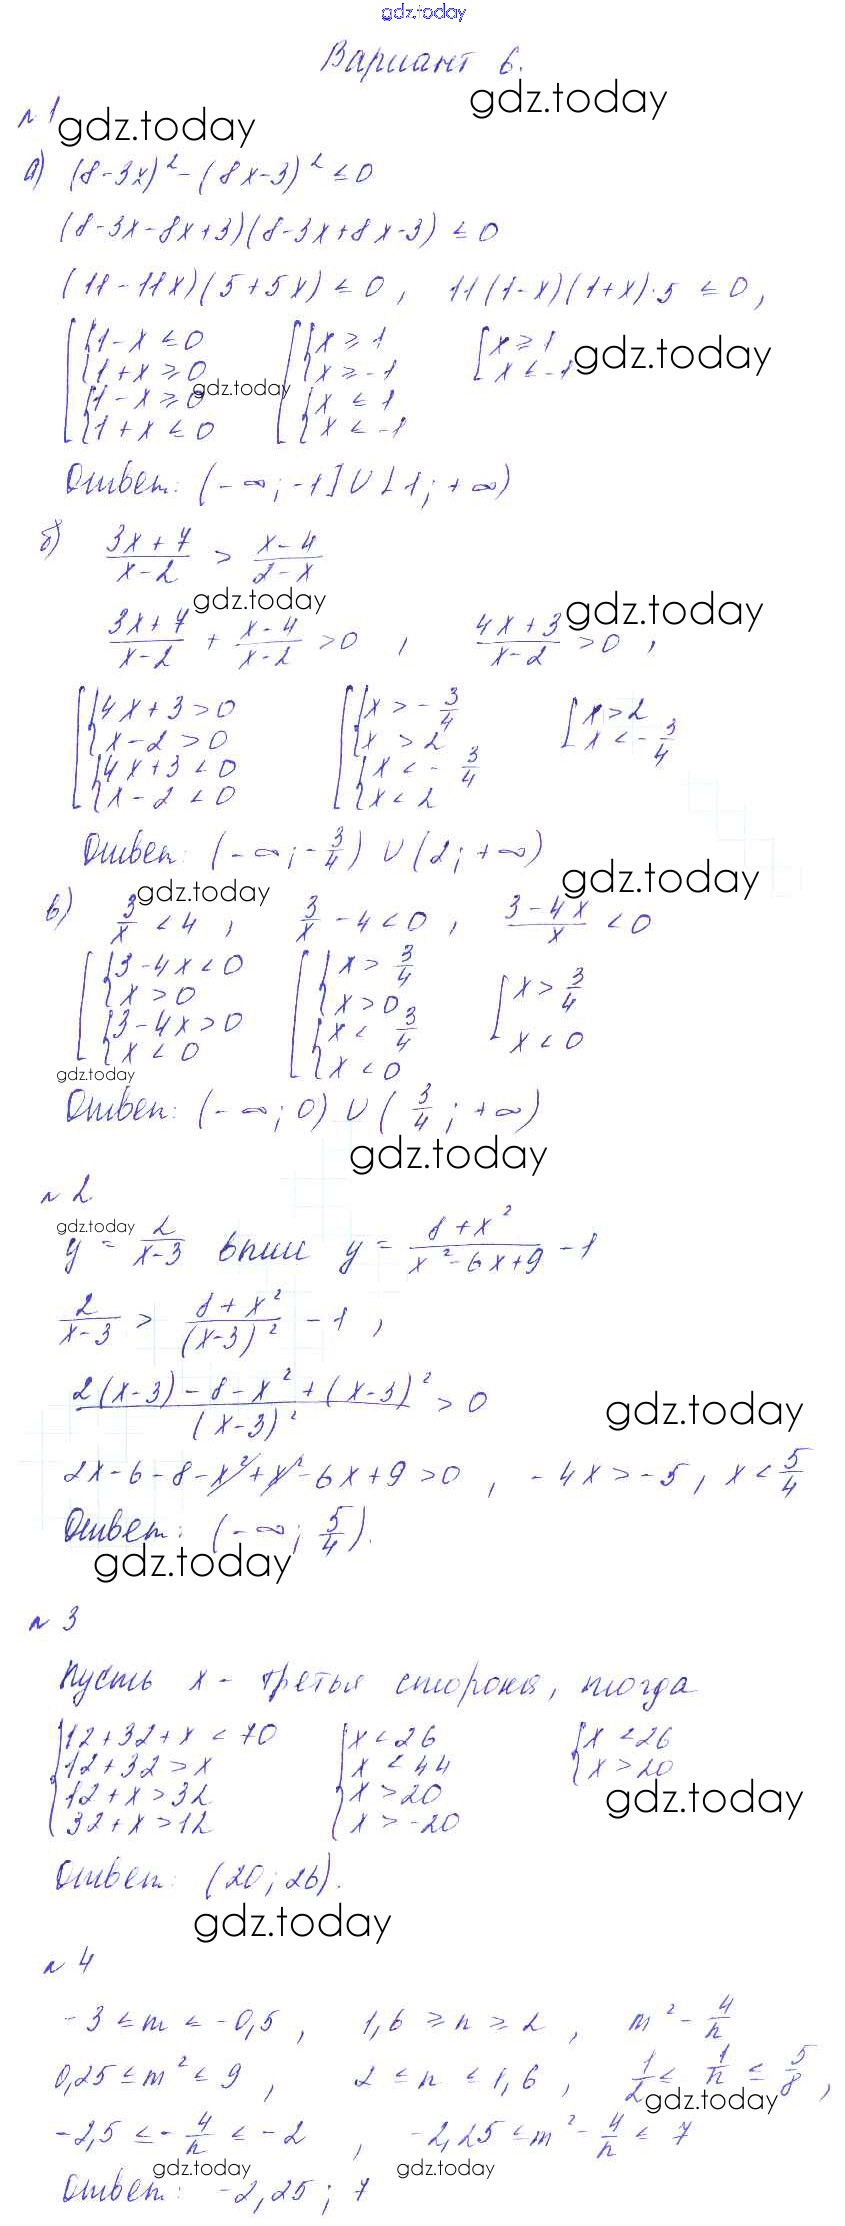 gdz.today
Вариант 6.
gdz.today
№1 gdz.today
а) (8-3x)² - (8x-3)² ≤ 0
(8-3x-8x+3)(8-3x+8x-3) ≤ 0
(11-11x)(5+5x) ≤ 0, 11(1-x)(1+x)·5 ≤ 0,
[{1-x ≤ 0 [{x ≥ 1 [x ≥ 1 gdz.today
{1+x ≥ 0 {x ≥ -1 x ≤ -1
{1-x ≥ 0 gdz.today {x ≤ 1
{1+x ≤ 0 {x ≤ -1
Ответ: (-∞; -1] ∪ [1; +∞)
б) (3x+7)/(x-2) > (x-4)/(2-x)
gdz.today gdz.today
(3x+7)/(x-2) + (x-4)/(x-2) > 0, (4x+3)/(x-2) > 0,
[{4x+3 > 0 [{x > -3/4 [x > 2
{x-2 > 0 {x > 2 x < -3/4
{4x+3 < 0 {x < -3/4
{x-2 < 0 {x < 2
Ответ: (-∞; -3/4) ∪ (2; +∞)
gdz.today gdz.today
в) 3/x < 4, 3/x - 4 < 0, (3-4x)/x < 0
[{3-4x < 0 [{x > 3/4 [x > 3/4
{x > 0 {x > 0 x < 0
{3-4x > 0 {x < 3/4
{x < 0 {x < 0
gdz.today
Ответ: (-∞; 0) ∪ (3/4; +∞)
gdz.today
№2
gdz.today
y = 2/(x-3) выше y = (8+x²)/(x²-6x+9) - 1
2/(x-3) > (8+x²)/(x-3)² - 1,
(2(x-3)-8-x²+(x-3)²)/(x-3)² > 0 gdz.today
2x-6-8-x²+x²-6x+9 > 0, -4x > -5, x < 5/4
Ответ: (-∞; 5/4).
gdz.today
№3
Пусть x - третья сторона, тогда
{12+32+x < 70 {x < 26 {x < 26
12+32 > x x < 44 x > 20
12+x > 32 x > 20 gdz.today
32+x > 12 x > -20
Ответ: (20; 26).
gdz.today
№4
-3 ≤ m ≤ -0,5, 1,6 ≥ n ≥ 2, m² - 4/n
0,25 ≤ m² ≤ 9, 2 ≤ n ≤ 1,6, 1/2 ≤ 1/n ≤ 5/8,
gdz.today
-2,5 ≤ -4/n ≤ -2, -2,25 ≤ m² - 4/n ≤ 7
gdz.today gdz.today
Ответ: -2,25; 7